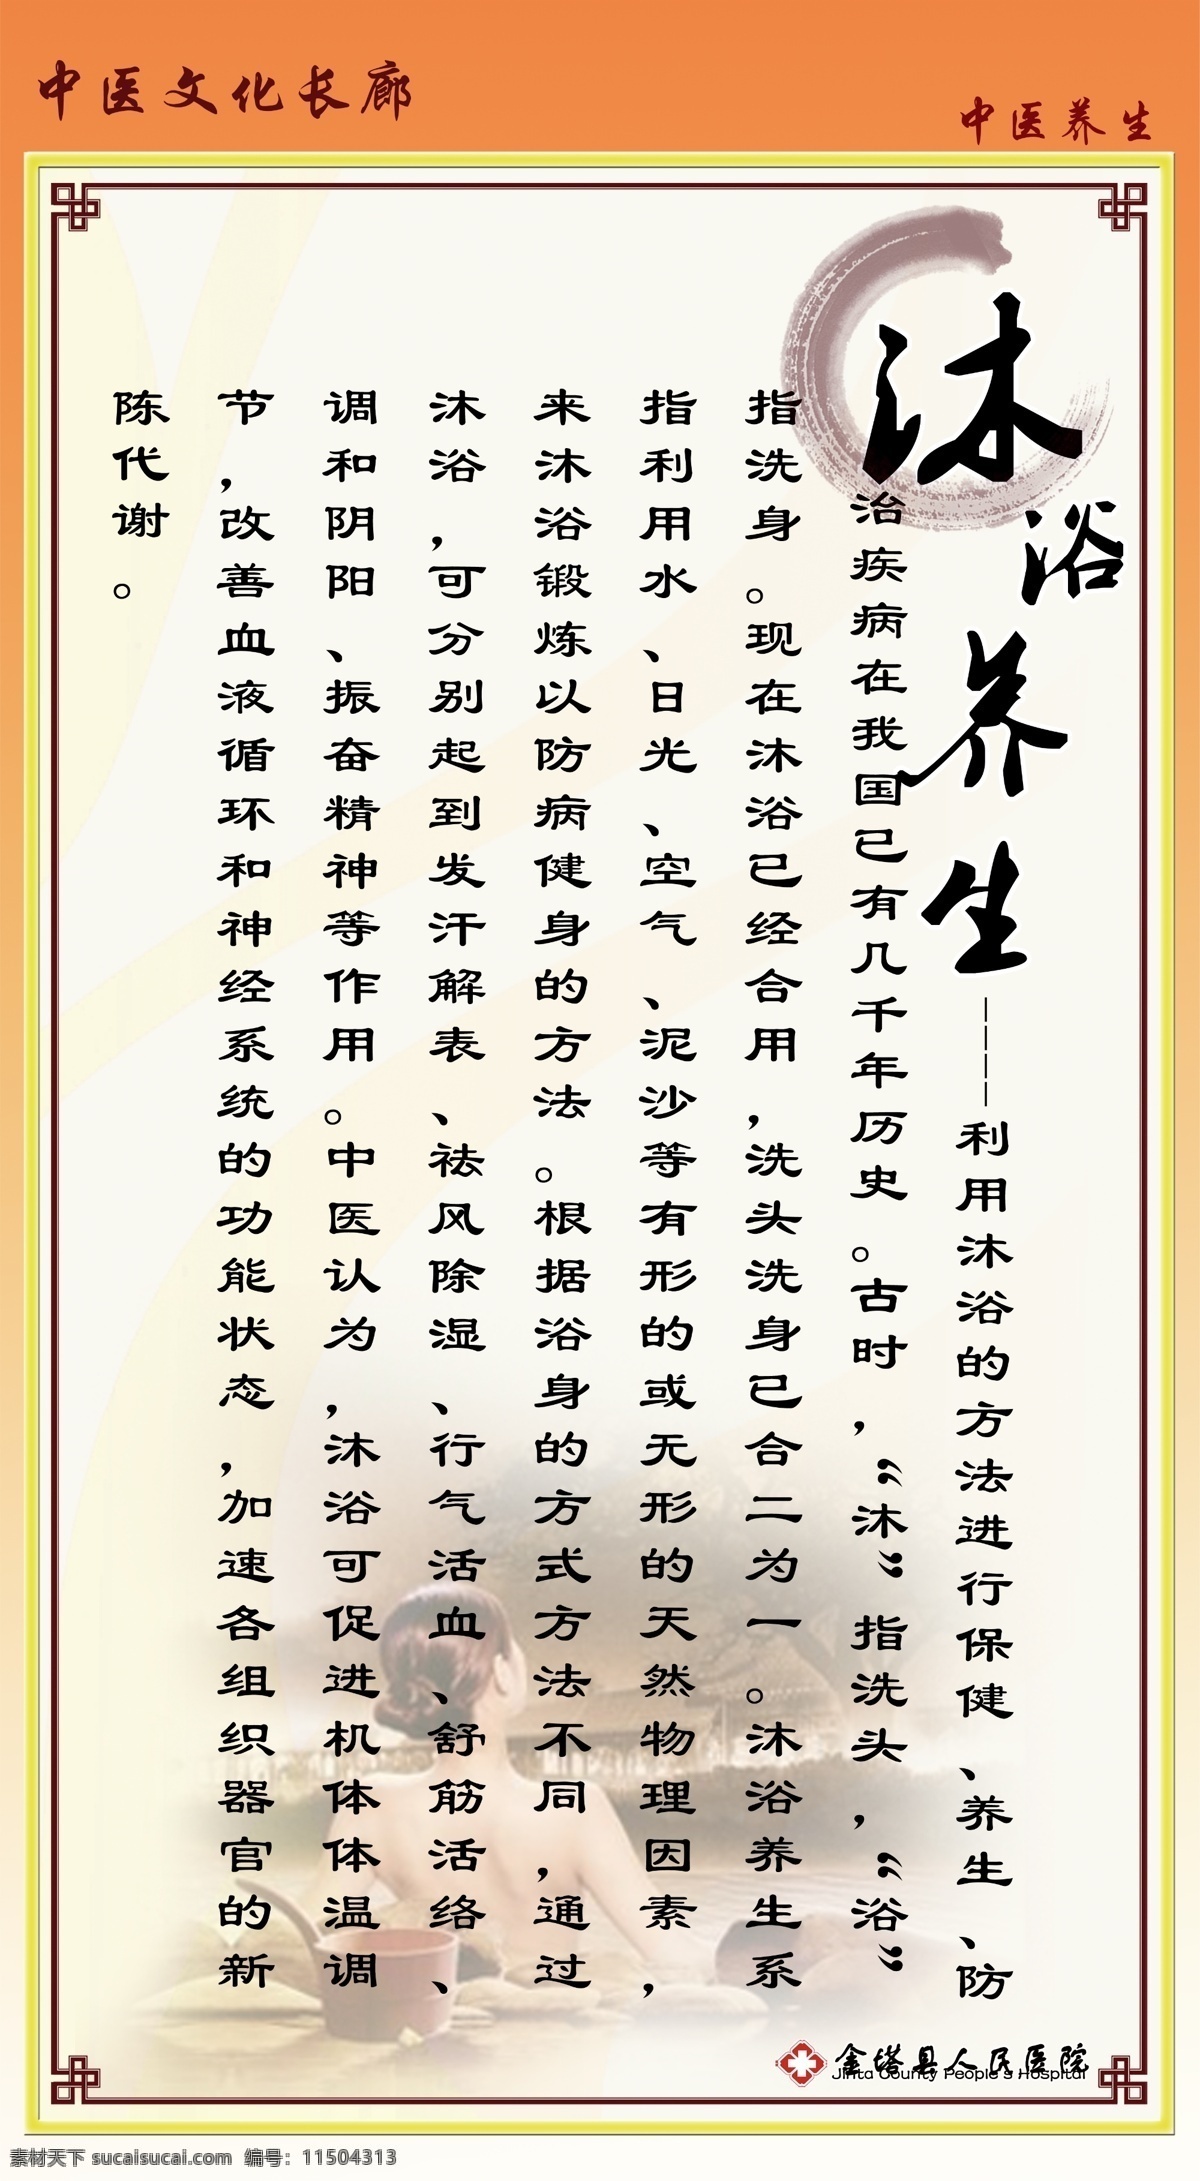 中医文化长廊
中医养生
沐浴养生----利用沐浴的方法进行保健、养生、防
治疾病在我国已有几千年历史。古时，“沐”指洗头，“浴”
指洗身。现在沐浴已经合用，洗头洗身已合二为一。沐浴养生系
指利用水、日光、空气、泥沙等有形的或无形的天然物理因素，
来沐浴锻炼以防病健身的方法。根据浴身的方式方法不同，通过
沐浴，可分别起到发汗解表、祛风除湿、行气活血、舒筋活络、
调和阴阳、振奋精神等作用。中医认为，沐浴可促进机体体温调
节，改善血液循环和神经系统的功能状态，加速各组织器官的新
陈代谢。
金塔县人民医院
Jinta County People's Hospital
素材天下 sucaisucai.com 编号：11504313